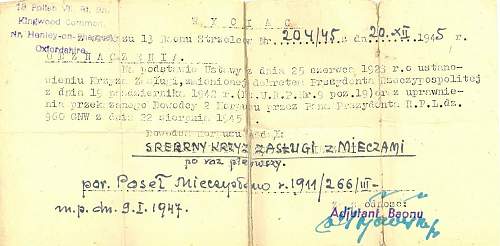 13 Polish Wk. Bt. Bn.
Kingwood Common,
Nr. Henley-on-Thames
Oxfordshire.
W Y C I A G
z Rozkazu 13 Baonu Strzelców Nr. 204/45 z dn. 20.XII 1945 r.
ODZNACZENIA.
Na podstawie Ustawy z dnia 25 czerwca 1923 r o ustano-
wieniu Krzyża Zasługi, zmienionej dekretem Prezydenta Rzeczypospolitej
z dnia 19 października 1942 r (Dz.U.R.P. Nr.9 poz.19) oraz uprawnie-
nia przekazanego Dowódcy 2 Korpusu przez Pana Prezydenta R.P. L.dz.
960 GNW z dnia 22 sierpnia 1945
Dowódca Korpusu
SREBRNY KRZYŻ ZASŁUGI Z MIECZAMI
po raz pierwszy.
por. Poseł Mieczysław r.1911/266/III-
m.p. dn. 9.I.1947.
Za zgodność:
Adjutant Baonu